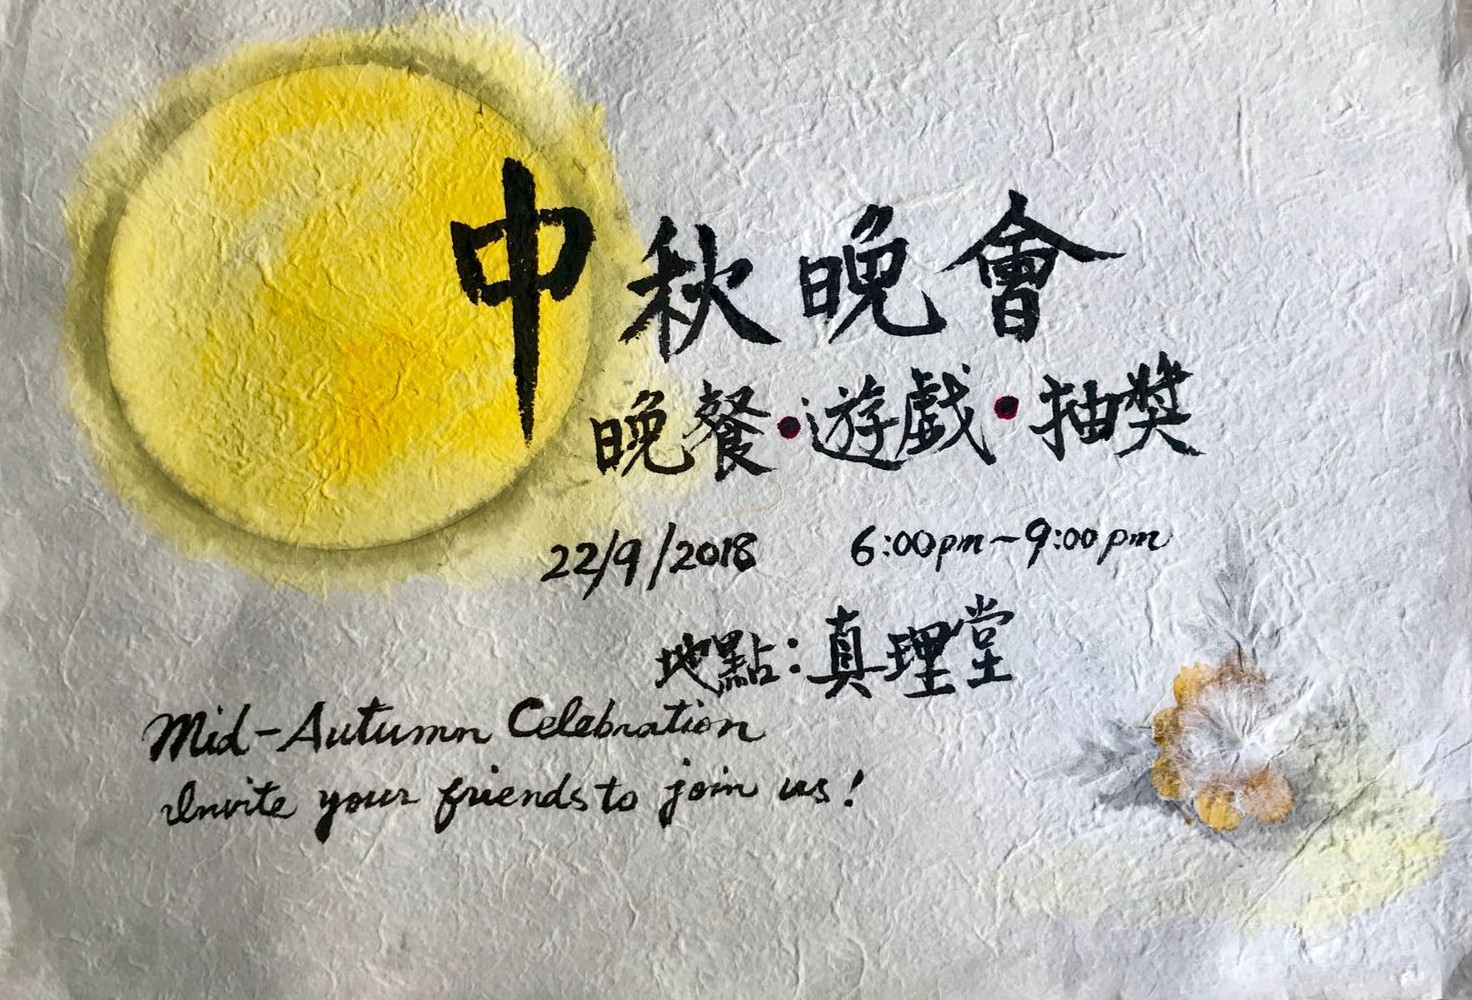 中秋晚會
晚餐•遊戲•抽奬
22/9/2018 6:00pm~9:00pm
地點:真理堂
Mid-Autumn Celebration
Invite your friends to join us!